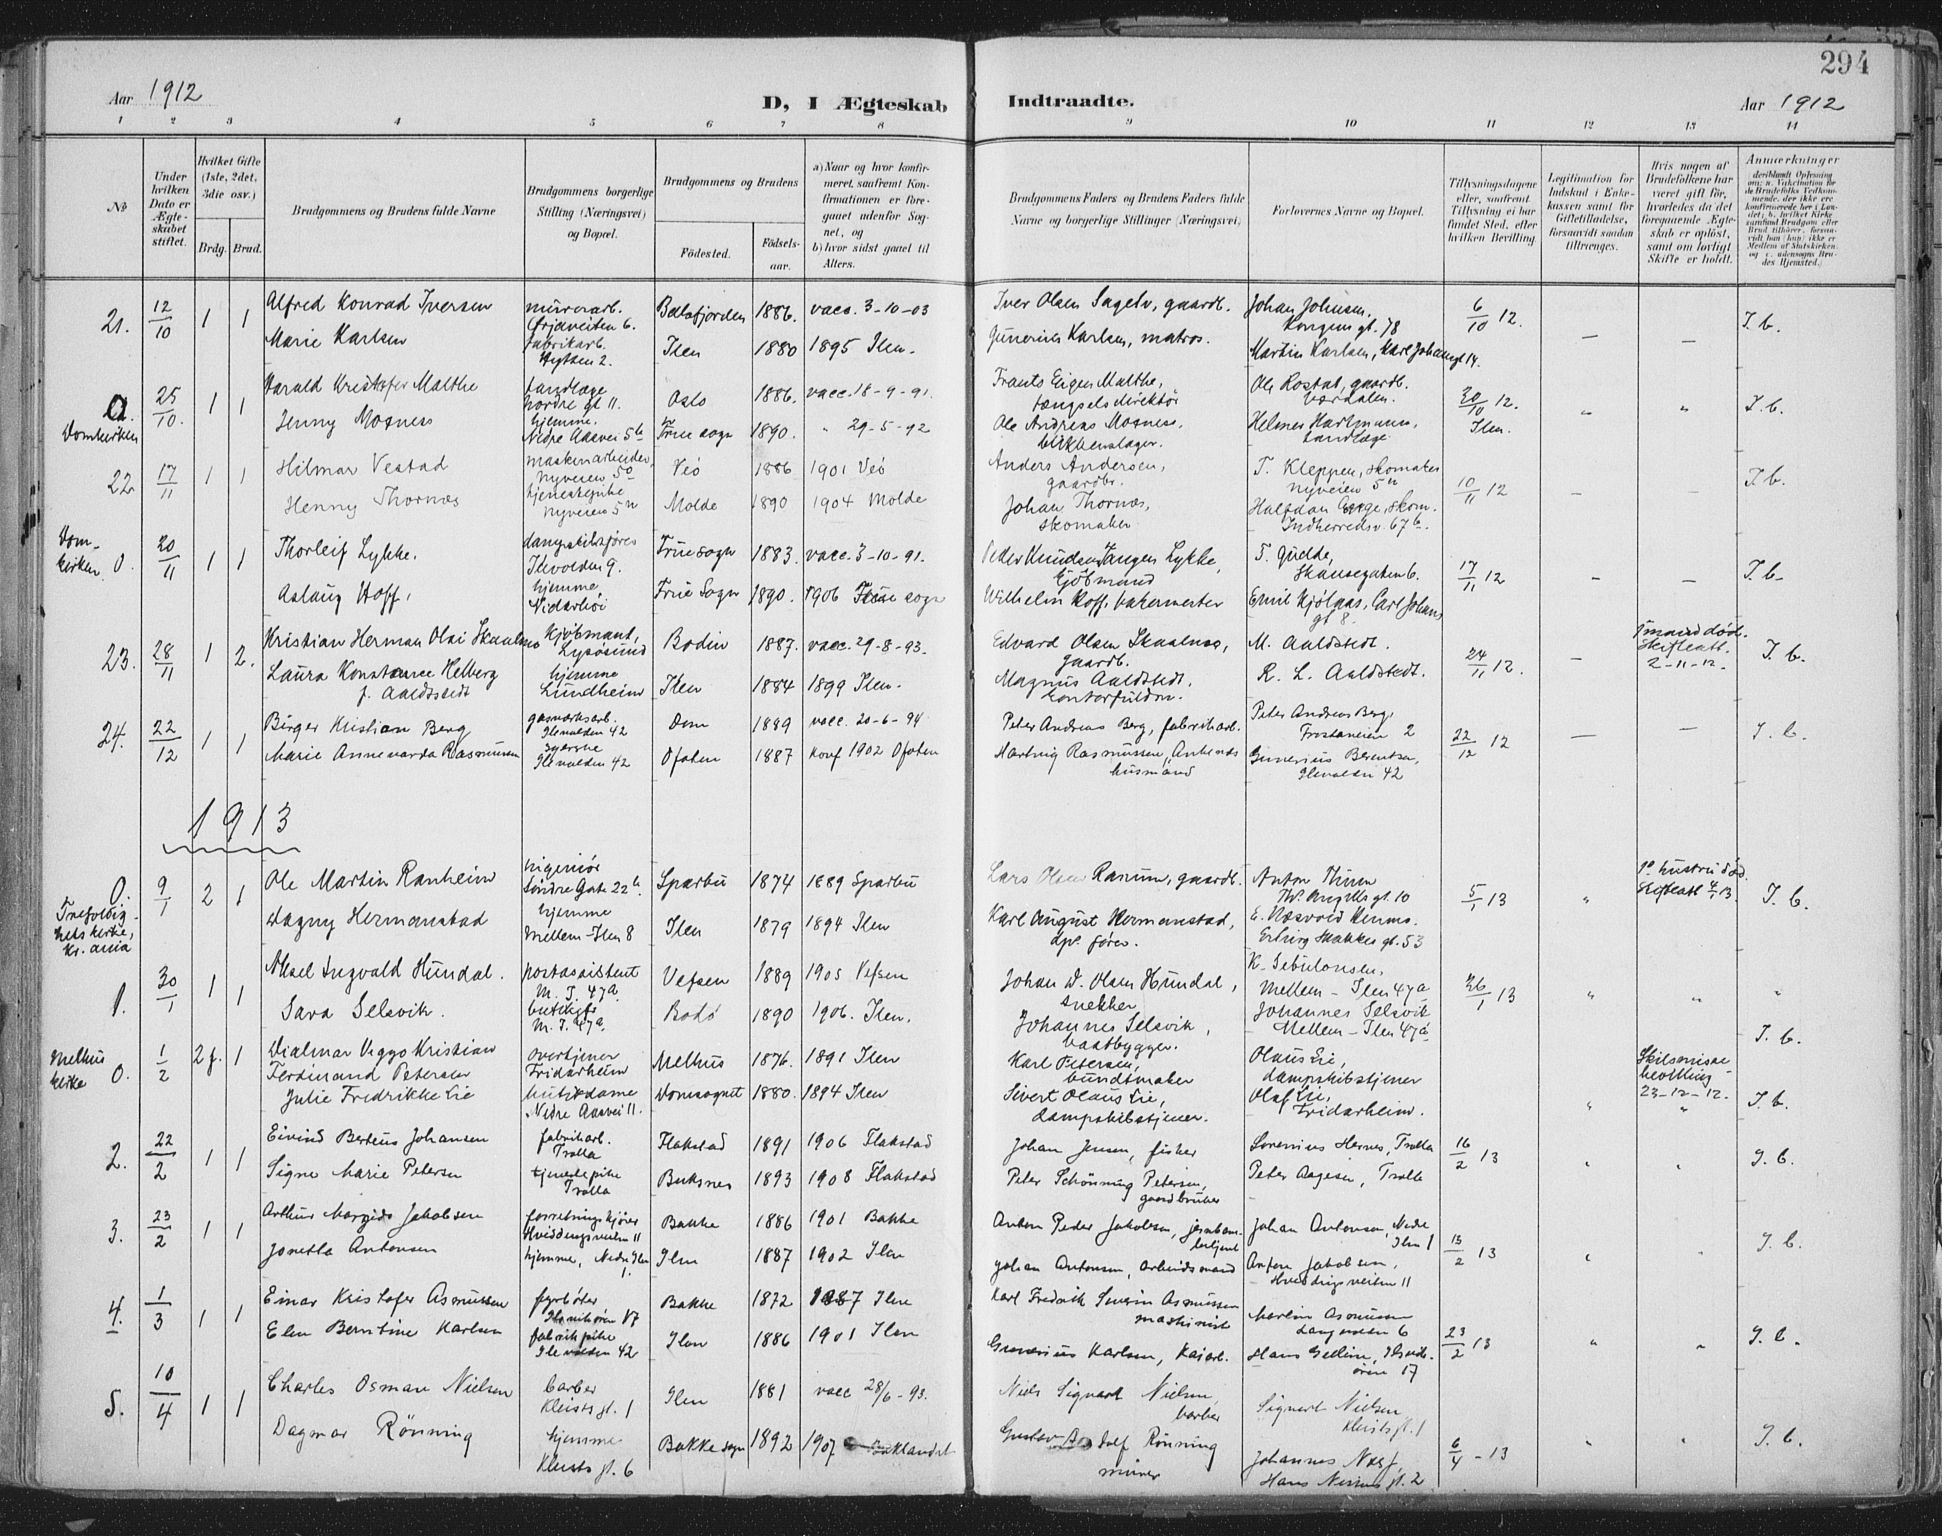 294
Aar 1912
D, I Ægteskab Indtraadte.
Aar 1912
1 2 3 4 5 6 7 8 9 10 11 12 13 14
№
Under hvilken Dato er Ægteskabet stiftet.
Hvilket Gifte (1ste, 2det, 3die osv.)
Brdg. Brud.
Brudgommens og Brudens fulde Navne
Brudgommens borgerlige Stilling (Næringsvei) og Bopæl.
Brudgommens og Brudens
Fødested.
Fødselsaar.
a) Naar og hvor konfirmeret, saafremt Konfirmationen er foregaaet udenfor Sognet, og
b) hvor sidst gaaet til Alters.
Brudgommens Faders og Brudens Faders fulde Navne og borgerlige Stillinger (Næringsvei)
Forlovernes Navne og Bopæl.
Tillysningsdagene eller, saafremt Tillysning ei har fundet Sted, efter hvilken Bevilling.
Legitimation for Indskud i Enkekassen samt for Giftetilladelse, forsaavidt saadan tiltrænges.
Hvis nogen af Brudefolkene har været gift før, hvorledes da det foregaaende Ægteskab er opløst, samt om lovligt Skifte er holdt.
Anmærkninger
21. 12/10 1 1 Alfred Konrad Iversen murerarb. Balsfjorden 1886. vacc. 3-10-03 Iver Olsen Sagelv, gaardb. Johan Johnsen, Kongens gt. 78 6/10 12. — — I. b.
Marie Karlsen fabrikarb. Ilen 1880 1895 Ilen. Gunerius Karlsen, matros. Martin Karlsen, Karl Johansgt 14.
Domkirken 25/10. 1 1 Harald Kristofer Malthe tandlæge Nordre gt 11. Oslo 1886. vacc. 18-9-91. Frants Eigen Malthe, fængselsdirektør Ole Rostat, gaardb. Værdalen. 20/10 12. Ilen. " " I. b.
Jenny Mosness hjemme. Nedre Aasvei 5b Frue sogn 1890. " 29-5-92 Ole Andreas Mosness, blikkenslager. Helmer Hartmann, tandlæge
22. 17/11 1 1 Hilmar Vestad maskinarbeider, Nyveien 5 Veö 1886 1901 Veö Anders Andersen, gaardbr. T. Kleppen, skomaker Nyveien 5 10/11 12 — — I. b.
Henny Thornæs tjenestepike Nyveien 5 Molde 1890 1904 Molde Johan Thornæs, skomaker Halfdan skom. Indherredsv. 67b.
Domkirken 0. 20/11 1 1 Thorleif Lykke. dampskibsfører Ilevolden 9. Frue sogn 1883. vacc. 3-10-91. Peder Knudsen Tangen Lykke, Kjöbmand T. Gjelde, Skansegaten 6. 17/11 12 — — I. b.
Aslaug Hoff, hjemme Nidarhöi Frue Sogn 1890. 1906 Frue sogn Wilhelm Hoff, Emil Kjölaas, Carl Johans gt 8.
23. 28/11 1 2. Kristian Herman Olai Skaalnes Kjøbmant, Lysösund Bodin 1887. vacc. 29-8-93. Edvard Olsen Skaalnes, gaardb. M. Aaldstedt. 24/11 12. — 1ste mand död. Skifteatt. 2-11-12. I. b.
Laura Konstance Helberg f. Aaldstedt hjemme Lundheim Ilen 1884 1899 Ilen. Magnus Aaldstedt. kontorfuldm. R. L. Aaldstedt.
24. 22/12 1 1 Birger Kristian Berg gasverksarb. Ilevolden 42 Dom 1889 vacc. 20-6-94 Peter Andreas Berg, fabrikarb. Peter Andreas Berg, Frostaveien 2 22/12 12 — — I. b.
Marie Annevarda Rasmussen syerske Ilevolden 42 Ofoten 1887 konf 1902 Ofoten Hartvig Rasmussen, husmand Gunerius Berentsen, Ilevolden 42
1913
0. Trefoldighetskirke, Kr.ania 9/1 2 1 Ole Martin Ranheim ingeniör Söndre Gate 22b Sparbu 1874 1889 Sparbu Lars Olsen Ranum, gaardb. Anton Thun Th. Angells gt. 10 5/1 13 " 1ste hustru död. Skifteatt 4/1 13. I. b.
Dagny Hermanstad hjemme Mellem-Ilen 8 Ilen 1879 1894 Ilen Karl August Hermanstad, dps. förer. E. Næsvold Erling Skakkes gt. 53
1. 30/1 1 1 Aksel Ingvald Hundal. postassistent M. I. 47a. Vefsen 1889 1905 Vefsen Johan D. Olsen Hundal, snekker K. Sebulonsen, Mellem-Ilen 47a 26/1 13 " " "
Sara Selsvik. butikjfr M. I. 47a. Bodö 1890 1906. Ilen. Johannes Selsvik, baatbygger. Johannes Selsvik Mellem-Ilen 47a I. b.
Melhus kirke 0. 1/2 2 f. 1 Dialmar Viggo Kristian Ferdinand Petersen overtjener Fridarheim Melhus 1876. 1891 Ilen Karl Petersen, bundtmaker Olaus Lie, dampskibstjener " Skilsmissebevilling 23-12-12. I. b.
Julie Fredrikke Lie butikdame Nedre Aasvei 11. Domsognet 1880. 1894 Ilen Sivert Olaus Lie, dampskibstjener. Olaf Lie, Fridarheim.
2. 22/2 1 1 Eivind Berteus Johansen fabrikarb. Trolla Flakstad 1891 1906 Flakstad Johan Jensen, fisker Sorenius Hernes, Trolla 16/2 13 " " I. b.
Signe Marie Petersen tjenestepike Trolla Buksnes 1893 1908 Flakstad Peter Schönning Petersen, gaardbruker Peter Aagesen, Trolla
3. 23/2 1 1 Arthur Jakobsen Hviddingsveien 11 Bakke 1886 1901 Bakke Anton Peder Jakobsen, jernbanebetjent Johan Antonsen, Nedre Ilen 1 13/2 13 " " I. b.
Jonetta Antonsen hjemme, Nedre Ilen 1. Ilen 1887 1902 Ilen Johan Antonsen, arbeidsmand Anton Jakobsen, Hviddingsveien 11
4. 1/3 1 1 Einar Kristofer Asmussen fyrböter Bakke 1872 1887 Ilen Karl Fredrik Severin Asmussen maskinist Martin Asmussen 6 23/2 13 " " I. b.
Elen Berntine Karlsen fabrikpike Ilevolden 42 Ilen 1886 1901 Ilen Gunerius Karlsen, kaiarb. Hans 17
5. 10/4 1 1 Charles Osmar Nielsen barber Kleists gt. 1 Ilen 1881 vacc 28/6-93. Niels Sigvart Nielsen barber Sigvart Nielsen Kleists gt. 1 6/4-13 " " I. b.
Dagmar Rönning hjemme Kleists gt. 6 Bakke sogn 1892 1907 Baklandet Gustav Adolf Rönning murer Johannes Næss, Hans Nissens gt. 2